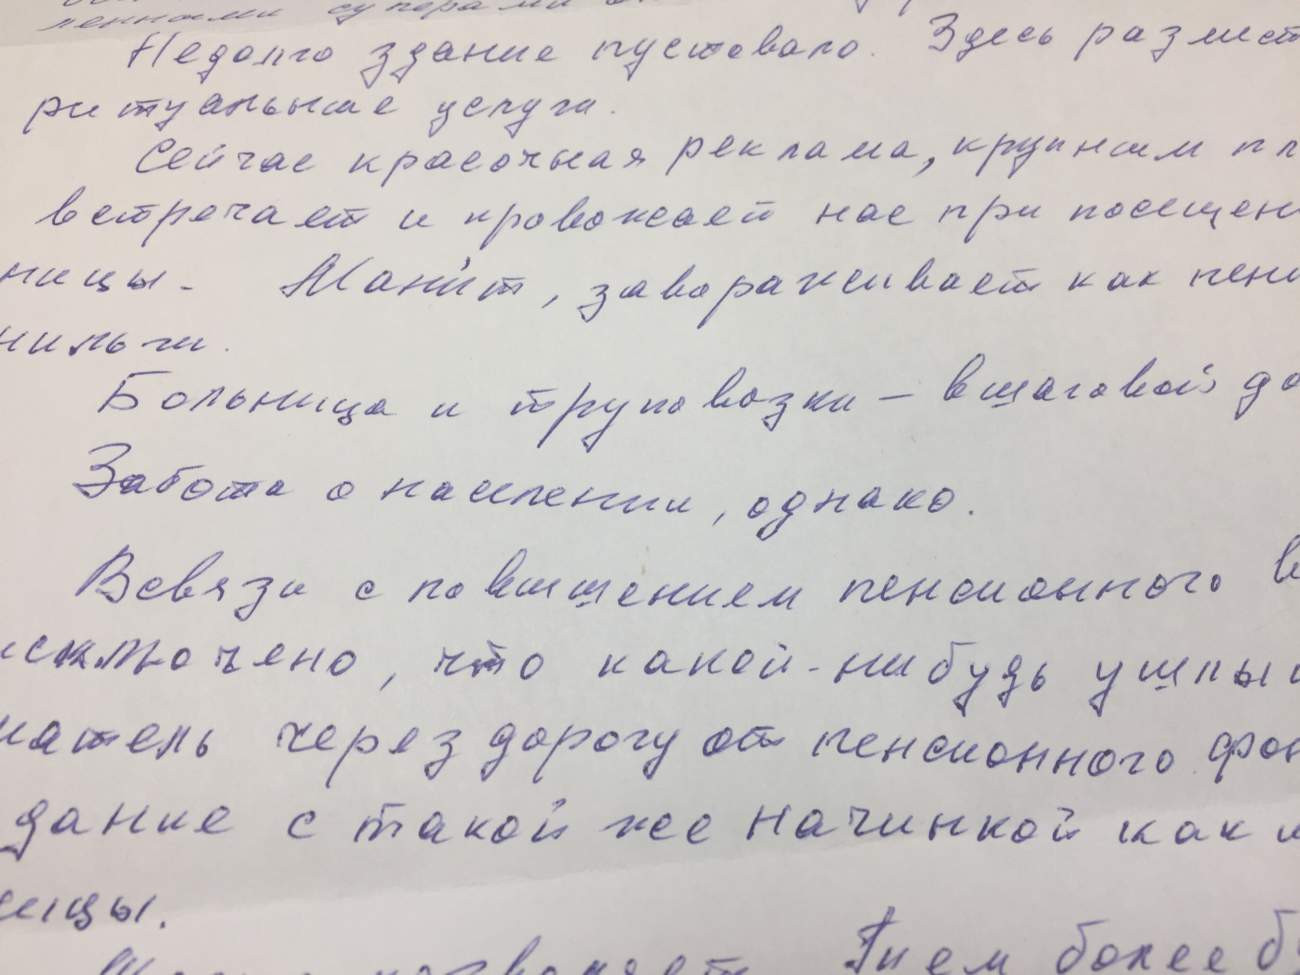 ленными суперами
Недолго здание пустовало. Здесь размест
ритуальные услуги.
Сейчас красочная реклама, крупным пл
встречает и провожает нас при посещен
ницы. Манит, завораживает как пени
нильги.
Больница и труповозки – в шаговой до
Забота о населении, однако.
Всвязи с повышением пенсионного в
исключено, что какой-нибудь ушлый
матель через дорогу от пенсионного фон
дание с такой же начинкой как
ицы.
позволяет. Тем более б